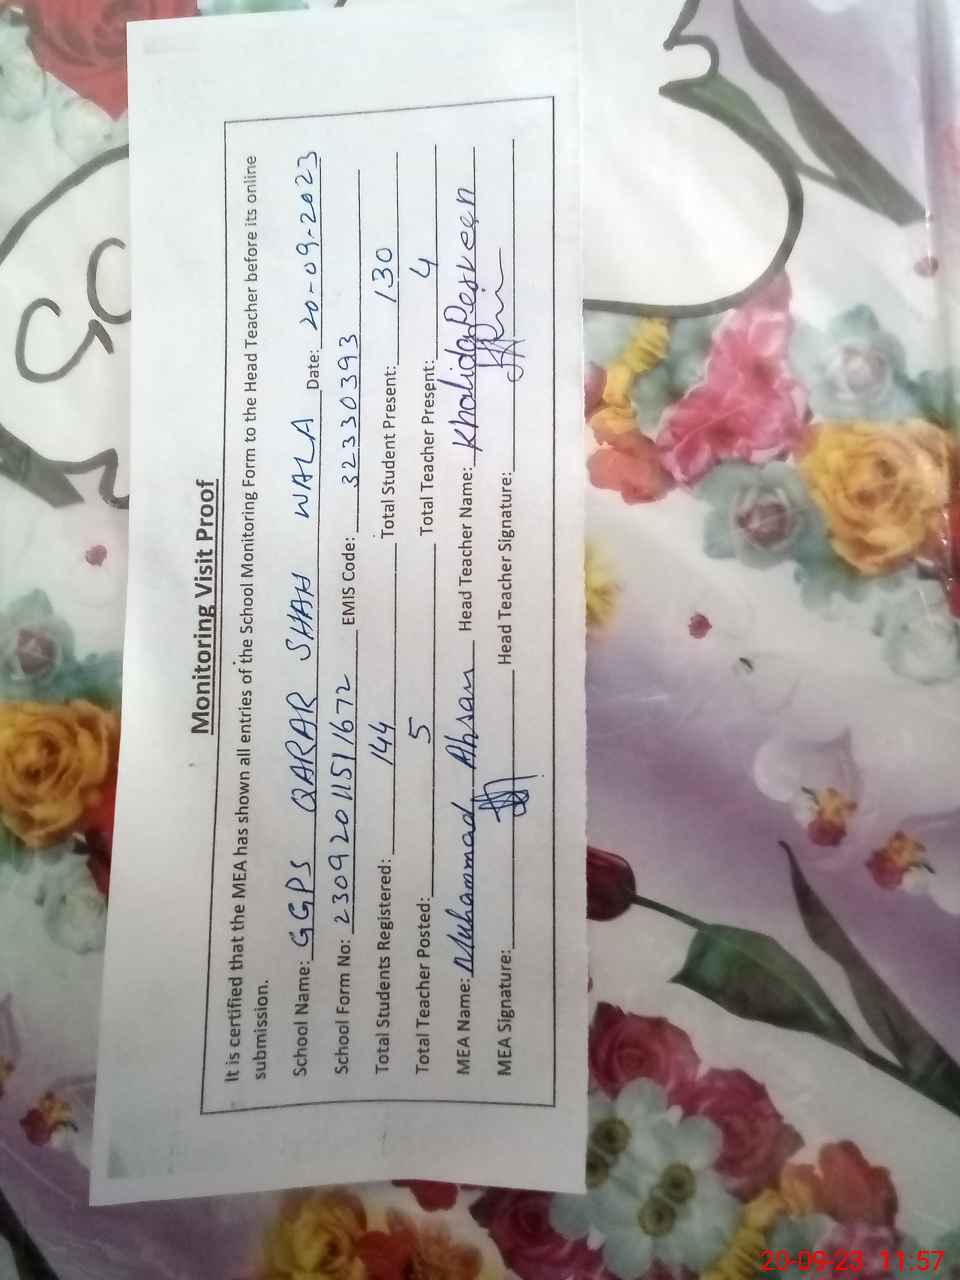 Monitoring Visit Proof
It is certified that the MEA has shown all entries of the School Monitoring Form to the Head Teacher before its online
submission.
School Name: GGPS QARAR SHAH WALA Date: 20-09-2023
School Form No: 23092011511672 EMIS Code: 32330393
Total Students Registered: 144 Total Student Present: 130
Total Teacher Posted: 5 Total Teacher Present: 4
MEA Name: Muhammad Ahsan Head Teacher Name: Khalida Perveen
MEA Signature: Head Teacher Signature:
20-09-23 11:57